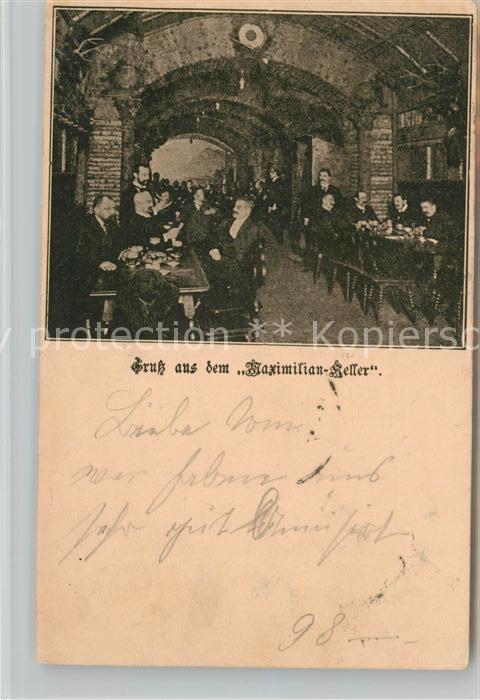 y protection ** Kopiersch
Gruß aus dem „Maximilian-Keller".
Liebe
wir haben uns
sehr gut Amusirt
98